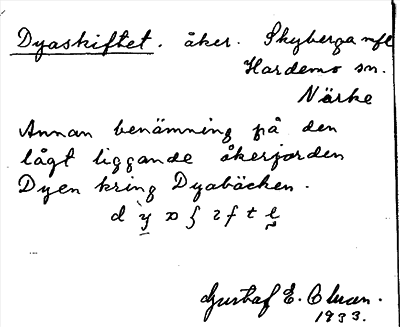 Dyaskiftet. åker. Skyberga nfl
Hardemo sn.
Närke
Annan benämning på den
lågt liggande åkerjorden
Dyen kring Dyabäcken.
Gustaf E.
1933.